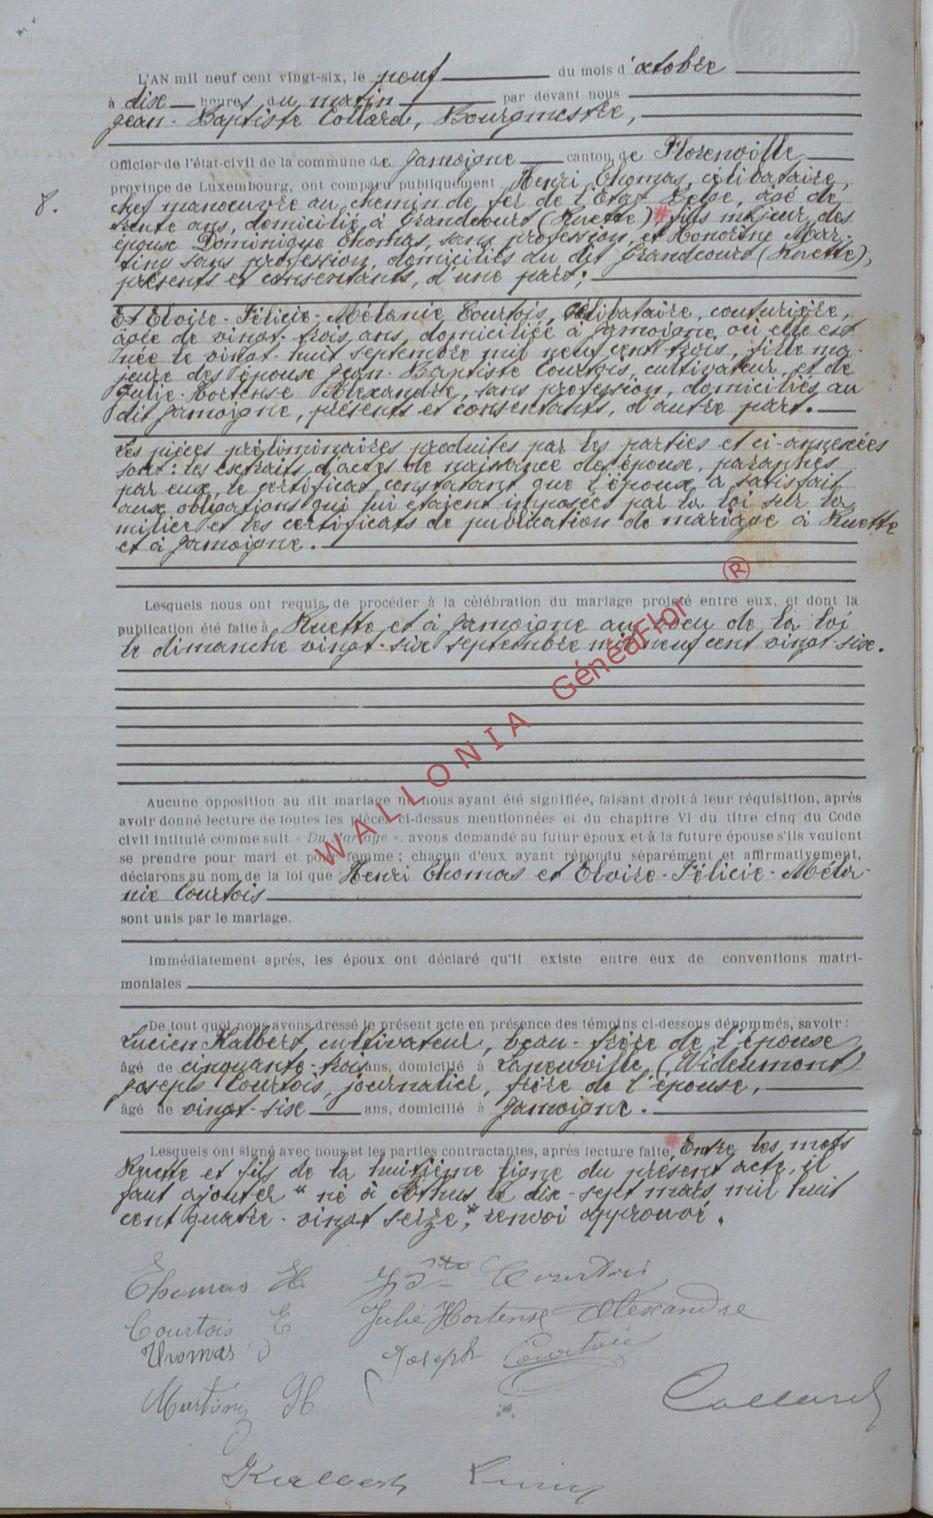 L'AN mil neuf cent vingt-six, le neuf du mois d'octobre
à dix heures du matin par devant nous
Jean-Baptiste Collard, Bourgmestre,
Officier de l'état-civil de la commune de Jamoigne canton de Florenville
8. province de Luxembourg, ont comparu publiquement Henri Thomas, célibataire,
chef manoeuvre au chemin de fer de l'Etat Belge, âgé de
trente ans, domicilié à Grandcourt (Ruette) # fils majeur des
époux Dominique Thomas, sans profession, et Honorine Mar-
tiny sans profession, domiciliés au dit Grandcourt (Ruette),
présents et consentants, d'une part;
Et Eloire-Félicie-Mélanie Courtois, célibataire, couturière,
âgée de vingt-trois ans, domiciliée à Jamoigne où elle est
née le vingt-huit septembre mil neuf cent trois, fille ma-
jeure des époux Jean-Baptiste Courtois, cultivateur, et de
Julie-Hortense Alexandre, sans profession, domiciliés au
dit Jamoigne, présents et consentants, d'autre part.
Les pièces préliminaires produites par les parties et ci-annexées
sont: les extraits d'actes de naissance des époux, paraphés
par eux, le certificat constatant que l'époux a satisfait
aux obligations qui lui étaient imposées par la loi sur la
milice et les certificats de publication de mariage à Ruette
et à Jamoigne.
Lesquels nous ont requis de procéder à la célébration du mariage projeté entre eux, et dont la
publication été faite à Ruette et à Jamoigne au voeu de la loi
le dimanche vingt-six septembre mil neuf cent vingt-six.
WALLONIA GénéaFlor ®
Aucune opposition au dit mariage ne nous ayant été signifiée, faisant droit à leur réquisition, après
avoir donné lecture de toutes les pièces ci-dessus mentionnées et du chapitre VI du titre cinq du Code
civil intitulé comme suit « Du Mariage », avons demandé au futur époux et à la future épouse s'ils veulent
se prendre pour mari et pour femme; chacun d'eux ayant répondu séparément et affirmativement,
déclarons au nom de la loi que Henri Thomas et Eloire-Félicie-Méla-
nie Courtois
sont unis par le mariage.
Immédiatement après, les époux ont déclaré qu'il existe entre eux de conventions matri-
moniales
De tout quoi nous avons dressé le présent acte en présence des témoins ci-dessous dénommés, savoir:
Lucien Kalbert, cultivateur, beau-frère de l'épouse
âgé de cinquante-trois ans, domicilié à Laneuville (Wideumont)
Joseph Courtois, journalier, frère de l'épouse,
âgé de vingt-six ans, domicilié à Jamoigne.
Lesquels ont signé avec nous et les parties contractantes, après lecture faite, # Entre les mots
Ruette et fils de la huitième ligne du présent acte, il
faut ajouter " né à le dix-sept mars mil huit
cent quatre-vingt seize", renvoi approuvé.
Thomas H. Courtois
Courtois E Julie Hortense Alexandre
Thomas D Joseph Courtois
Martiny H Collard
Kalbert